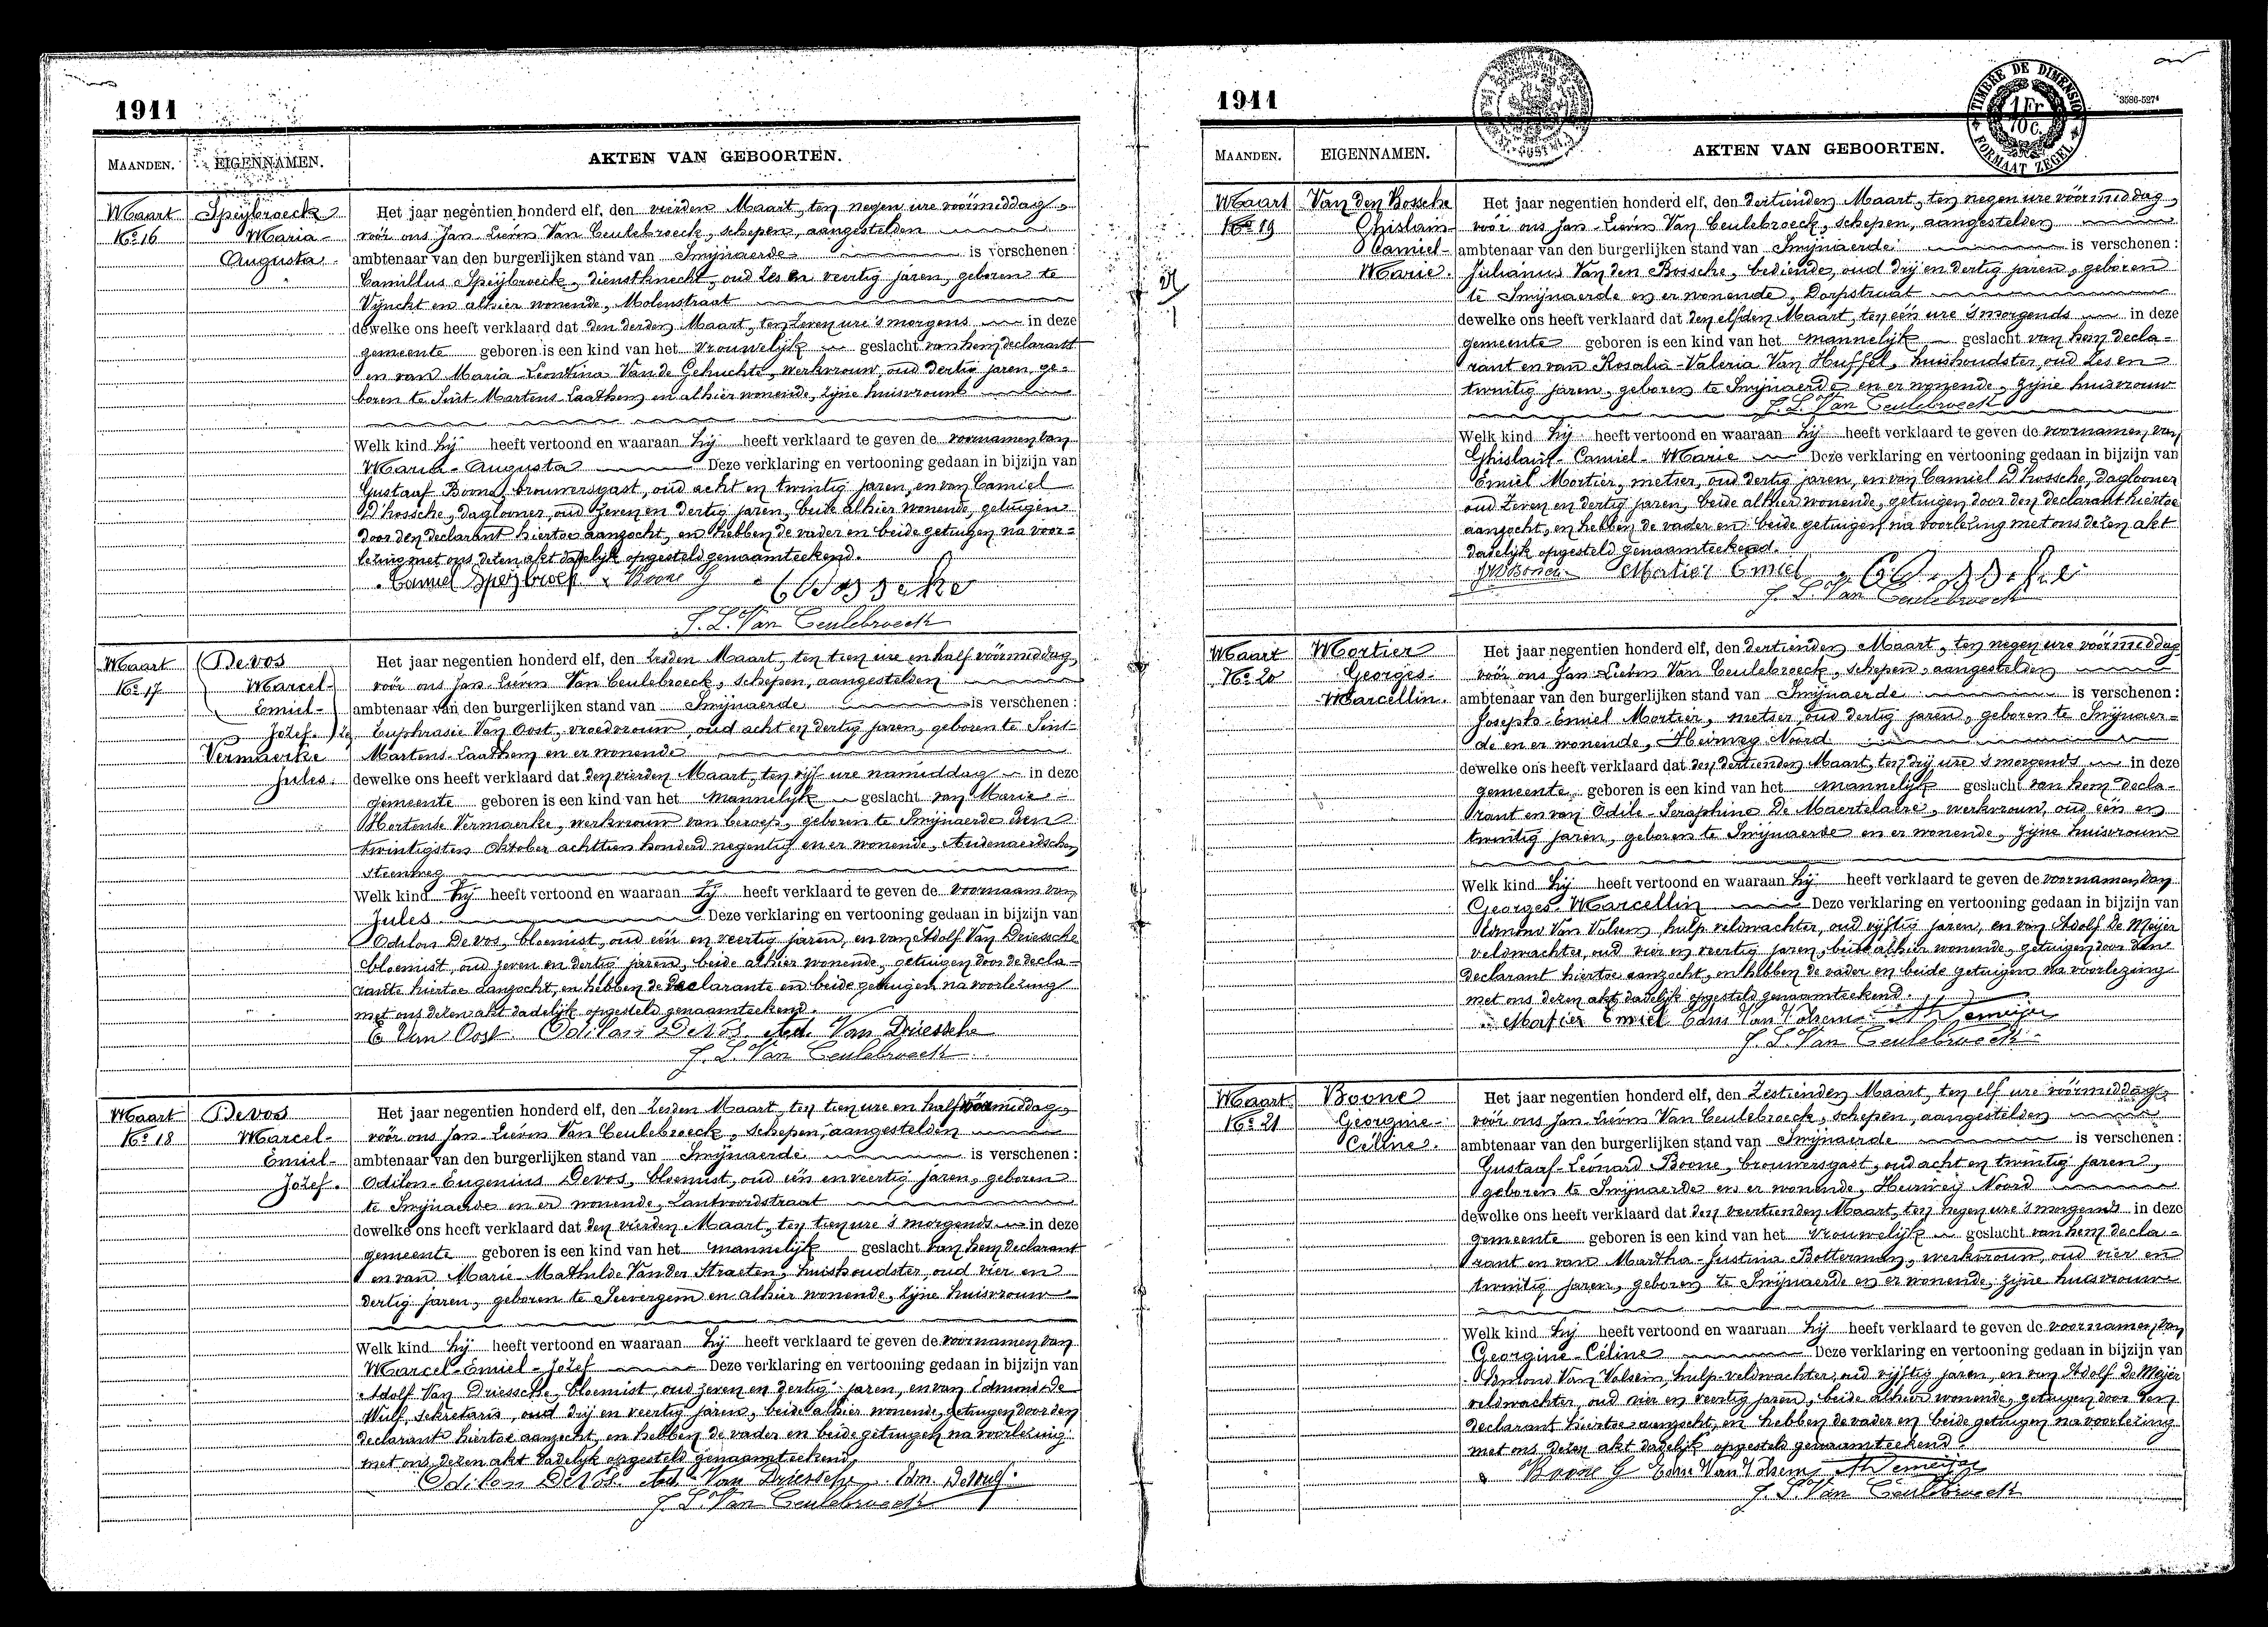 1911
MAANDEN. EIGENNAMEN. AKTEN VAN GEBOORTEN.
Maart
No 16
Speijbroeck
Maria-
Augusta.
Het jaar negentien honderd elf, den vierden Maart, ten negen ure voormiddag,
vóór ons Jan-Lievin Van Ceulebroeck, schepen, aangestelden
ambtenaar van den burgerlijken stand van Swijnaerde is verschenen:
Camillus Speijbroeck, dienstknecht, oud zes en veertig jaren, geboren te
Vijnckt en alhier wonende, Molenstraat
dewelke ons heeft verklaard dat den derden Maart, ten zeven ure 's morgens in deze
gemeente geboren is een kind van het vrouwelijk geslacht van hem declarant
en van Maria Leontina Van de Gehuchte, werkvrouw, oud dertig jaren, ge-
boren te Sint Martens Laathem en alhier wonende, zijne huisvrouw
Welk kind hij heeft vertoond en waaraan hij heeft verklaard te geven de voornamen van
Maria-Augusta Deze verklaring en vertooning gedaan in bijzijn van
Gustaaf Boone, brouwersgast, oud acht en twintig jaren, en van Camiel
D'hossche, daglooner, oud zeven en dertig jaren, beide alhier wonende, getuigen
door den declarant hiertoe aanzocht, en hebben de vader en beide getuigen na voor-
lezing met ons dezen akt dadelijk opgesteld genaamteekend.
Camiel Speijbroek Boone G
J. L. Van Ceulebroeck
Maart
No 17
Devos
Marcel-
Emiel-
Jozef.
Vermaerke
Jules.
Het jaar negentien honderd elf, den zesden Maart, ten tien ure en half voormiddag,
vóór ons Jan-Lievin Van Ceulebroeck, schepen, aangestelden
ambtenaar van den burgerlijken stand van Swijnaerde is verschenen:
Euphrasie Van Oost, vroedvrouw, oud acht en dertig jaren, geboren te Sint-
Martens-Laathem en er wonende
dewelke ons heeft verklaard dat den vierden Maart, ten vijf ure namiddag in deze
gemeente geboren is een kind van het mannelijk geslacht van Marie-
Hortense Vermaerke, werkvrouw van beroep, geboren te Swijnaerde den
twintigsten Oktober achttien honderd negentig en er wonende, Audenaerdschen
steenweg
Welk kind zij heeft vertoond en waaraan zij heeft verklaard te geven de voornaam van
Jules. Deze verklaring en vertooning gedaan in bijzijn van
Odilon Devos, bloemist, oud één en veertig jaren, en van Adolf Van Driessche
bloemist, oud zeven en dertig jaren, beide alhier wonende, getuigen door de decla-
rante hiertoe aanzocht, en hebben de declarante en beide getuigen na voorlezing
met ons dezen akt dadelijk opgesteld genaamteekend.
E Van Oost. Odilon DeVos. Ad. Van Driessche
J. L. Van Ceulebroeck
Maart
No 18
Devos
Marcel-
Emiel-
Jozef.
Het jaar negentien honderd elf, den zesden Maart, ten tien ure en half voormiddag,
vóór ons Jan-Lievin Van Ceulebroeck, schepen, aangestelden
ambtenaar van den burgerlijken stand van Swijnaerde is verschenen:
Odilon-Eugenius Devos, bloemist, oud één en veertig jaren, geboren
te Swijnaerde en er wonende, Zantvoordstraat
dewelke ons heeft verklaard dat den vierden Maart, ten tien ure 's morgends in deze
gemeente geboren is een kind van het mannelijk geslacht van hem declarant
en van Marie-Mathilde Van der Straeten, huishoudster, oud vier en
dertig jaren, geboren te Seevergem en alhier wonende, zijne huisvrouw
Welk kind hij heeft vertoond en waaraan hij heeft verklaard te geven de voornamen van
Marcel-Emiel-Jozef Deze verklaring en vertooning gedaan in bijzijn van
Adolf Van Driessche, bloemist, oud zeven en dertig jaren, en van Edmond de
Wulf, sekretaris, oud drij en veertig jaren, beide alhier wonende, getuigen door den
declarant hiertoe aanzocht, en hebben de vader en beide getuigen na voorlezing
met ons dezen akt dadelijk opgesteld genaamteekend.
Odilon DeVos. Ad. Van Driessche. Edm. DeWulf.
J. L. Van Ceulebroeck
1911
TIMBRE DE DIMENSION
1 Fr
10 c.
FORMAAT ZEGEL
3586-5274
MAANDEN. EIGENNAMEN. AKTEN VAN GEBOORTEN.
Maart
No 19
Van den Bossche
Ghislain-
Camiel-
Marie.
Het jaar negentien honderd elf, den dertienden Maart, ten negen ure voormiddag,
vóór ons Jan-Lievin Van Ceulebroeck, schepen, aangestelden
ambtenaar van den burgerlijken stand van Swijnaerde is verschenen:
Julianus Van den Bossche, bediende, oud drij en dertig jaren, geboren
te Swijnaerde en er wonende, Dorpstraat
dewelke ons heeft verklaard dat den elfden Maart, ten één ure 's morgends in deze
gemeente geboren is een kind van het mannelijk geslacht van hem decla-
rant en van Rosalia-Valeria Van Huffel, huishoudster, oud zes en
twintig jaren, geboren te Swijnaerde en er wonende, zijne huisvrouw
J. L. Van Ceulebroeck
Welk kind hij heeft vertoond en waaraan hij heeft verklaard te geven de voornamen van
Ghislain-Camiel-Marie Deze verklaring en vertooning gedaan in bijzijn van
Emiel Mortier, metser, oud dertig jaren, en van Camiel D'hossche, daglooner
oud zeven en dertig jaren, beide alhier wonende, getuigen door den declarant hiertoe
aanzocht, en hebben de vader en beide getuigen na voorlezing met ons dezen akt
dadelijk opgesteld genaamteekend.
Mortier Emiel
J. L. Van Ceulebroeck
Maart
No 20
Mortier
Georges-
Marcellin.
Het jaar negentien honderd elf, den dertienden Maart, ten negen ure voormiddag
vóór ons Jan-Lievin Van Ceulebroeck, schepen, aangestelden
ambtenaar van den burgerlijken stand van Swijnaerde is verschenen:
Joseph-Emiel Mortier, metser, oud dertig jaren, geboren te Swijnaer-
de en er wonende, Heirweg Noord
dewelke ons heeft verklaard dat den dertienden Maart, ten drij ure 's morgends in deze
gemeente geboren is een kind van het mannelijk geslacht van hem decla-
rant en van Odile-Seraphine De Maertelaere, werkvrouw, oud één en
twintig jaren, geboren te Swijnaerde en er wonende, zijne huisvrouw
Welk kind hij heeft vertoond en waaraan hij heeft verklaard te geven de voornamen van
Georges-Marcellin Deze verklaring en vertooning gedaan in bijzijn van
Edmond Van Volsem, hulp-veldwachter, oud vijftig jaren, en van Adolf De Meijer
veldwachter, oud vier en veertig jaren, beide alhier wonende, getuigen door den
declarant hiertoe aanzocht, en hebben de vader en beide getuigen na voorlezing
met ons dezen akt dadelijk opgesteld genaamteekend.
Mortier Emiel Edm Van Volsem A Demeijer
J. L. Van Ceulebroeck
Maart
No 21
Boone
Georgine-
Céline.
Het jaar negentien honderd elf, den zestienden Maart, ten elf ure voormiddag,
vóór ons Jan-Lievin Van Ceulebroeck, schepen, aangestelden
ambtenaar van den burgerlijken stand van Swijnaerde is verschenen:
Gustaaf-Léonard Boone, brouwersgast, oud acht en twintig jaren,
geboren te Swijnaerde en er wonende, Heirweg Noord
dewelke ons heeft verklaard dat den veertienden Maart, ten negen ure 's morgends in deze
gemeente geboren is een kind van het vrouwelijk geslacht van hem decla-
rant en van Martha-Justina Botterman, werkvrouw, oud vier en
twintig jaren, geboren te Swijnaerde en er wonende, zijne huisvrouw
Welk kind hij heeft vertoond en waaraan hij heeft verklaard te geven de voornamen van
Georgine-Céline Deze verklaring en vertooning gedaan in bijzijn van
Edmond Van Volsem, hulp-veldwachter, oud vijftig jaren, en van Adolf de Meijer
veldwachter, oud vier en veertig jaren, beide alhier wonende, getuigen door den
declarant hiertoe aanzocht, en hebben de vader en beide getuigen na voorlezing
met ons dezen akt dadelijk opgesteld genaamteekend.
Boone G Edm Van Volsem A Demeijer
J. L. Van Ceulebroeck